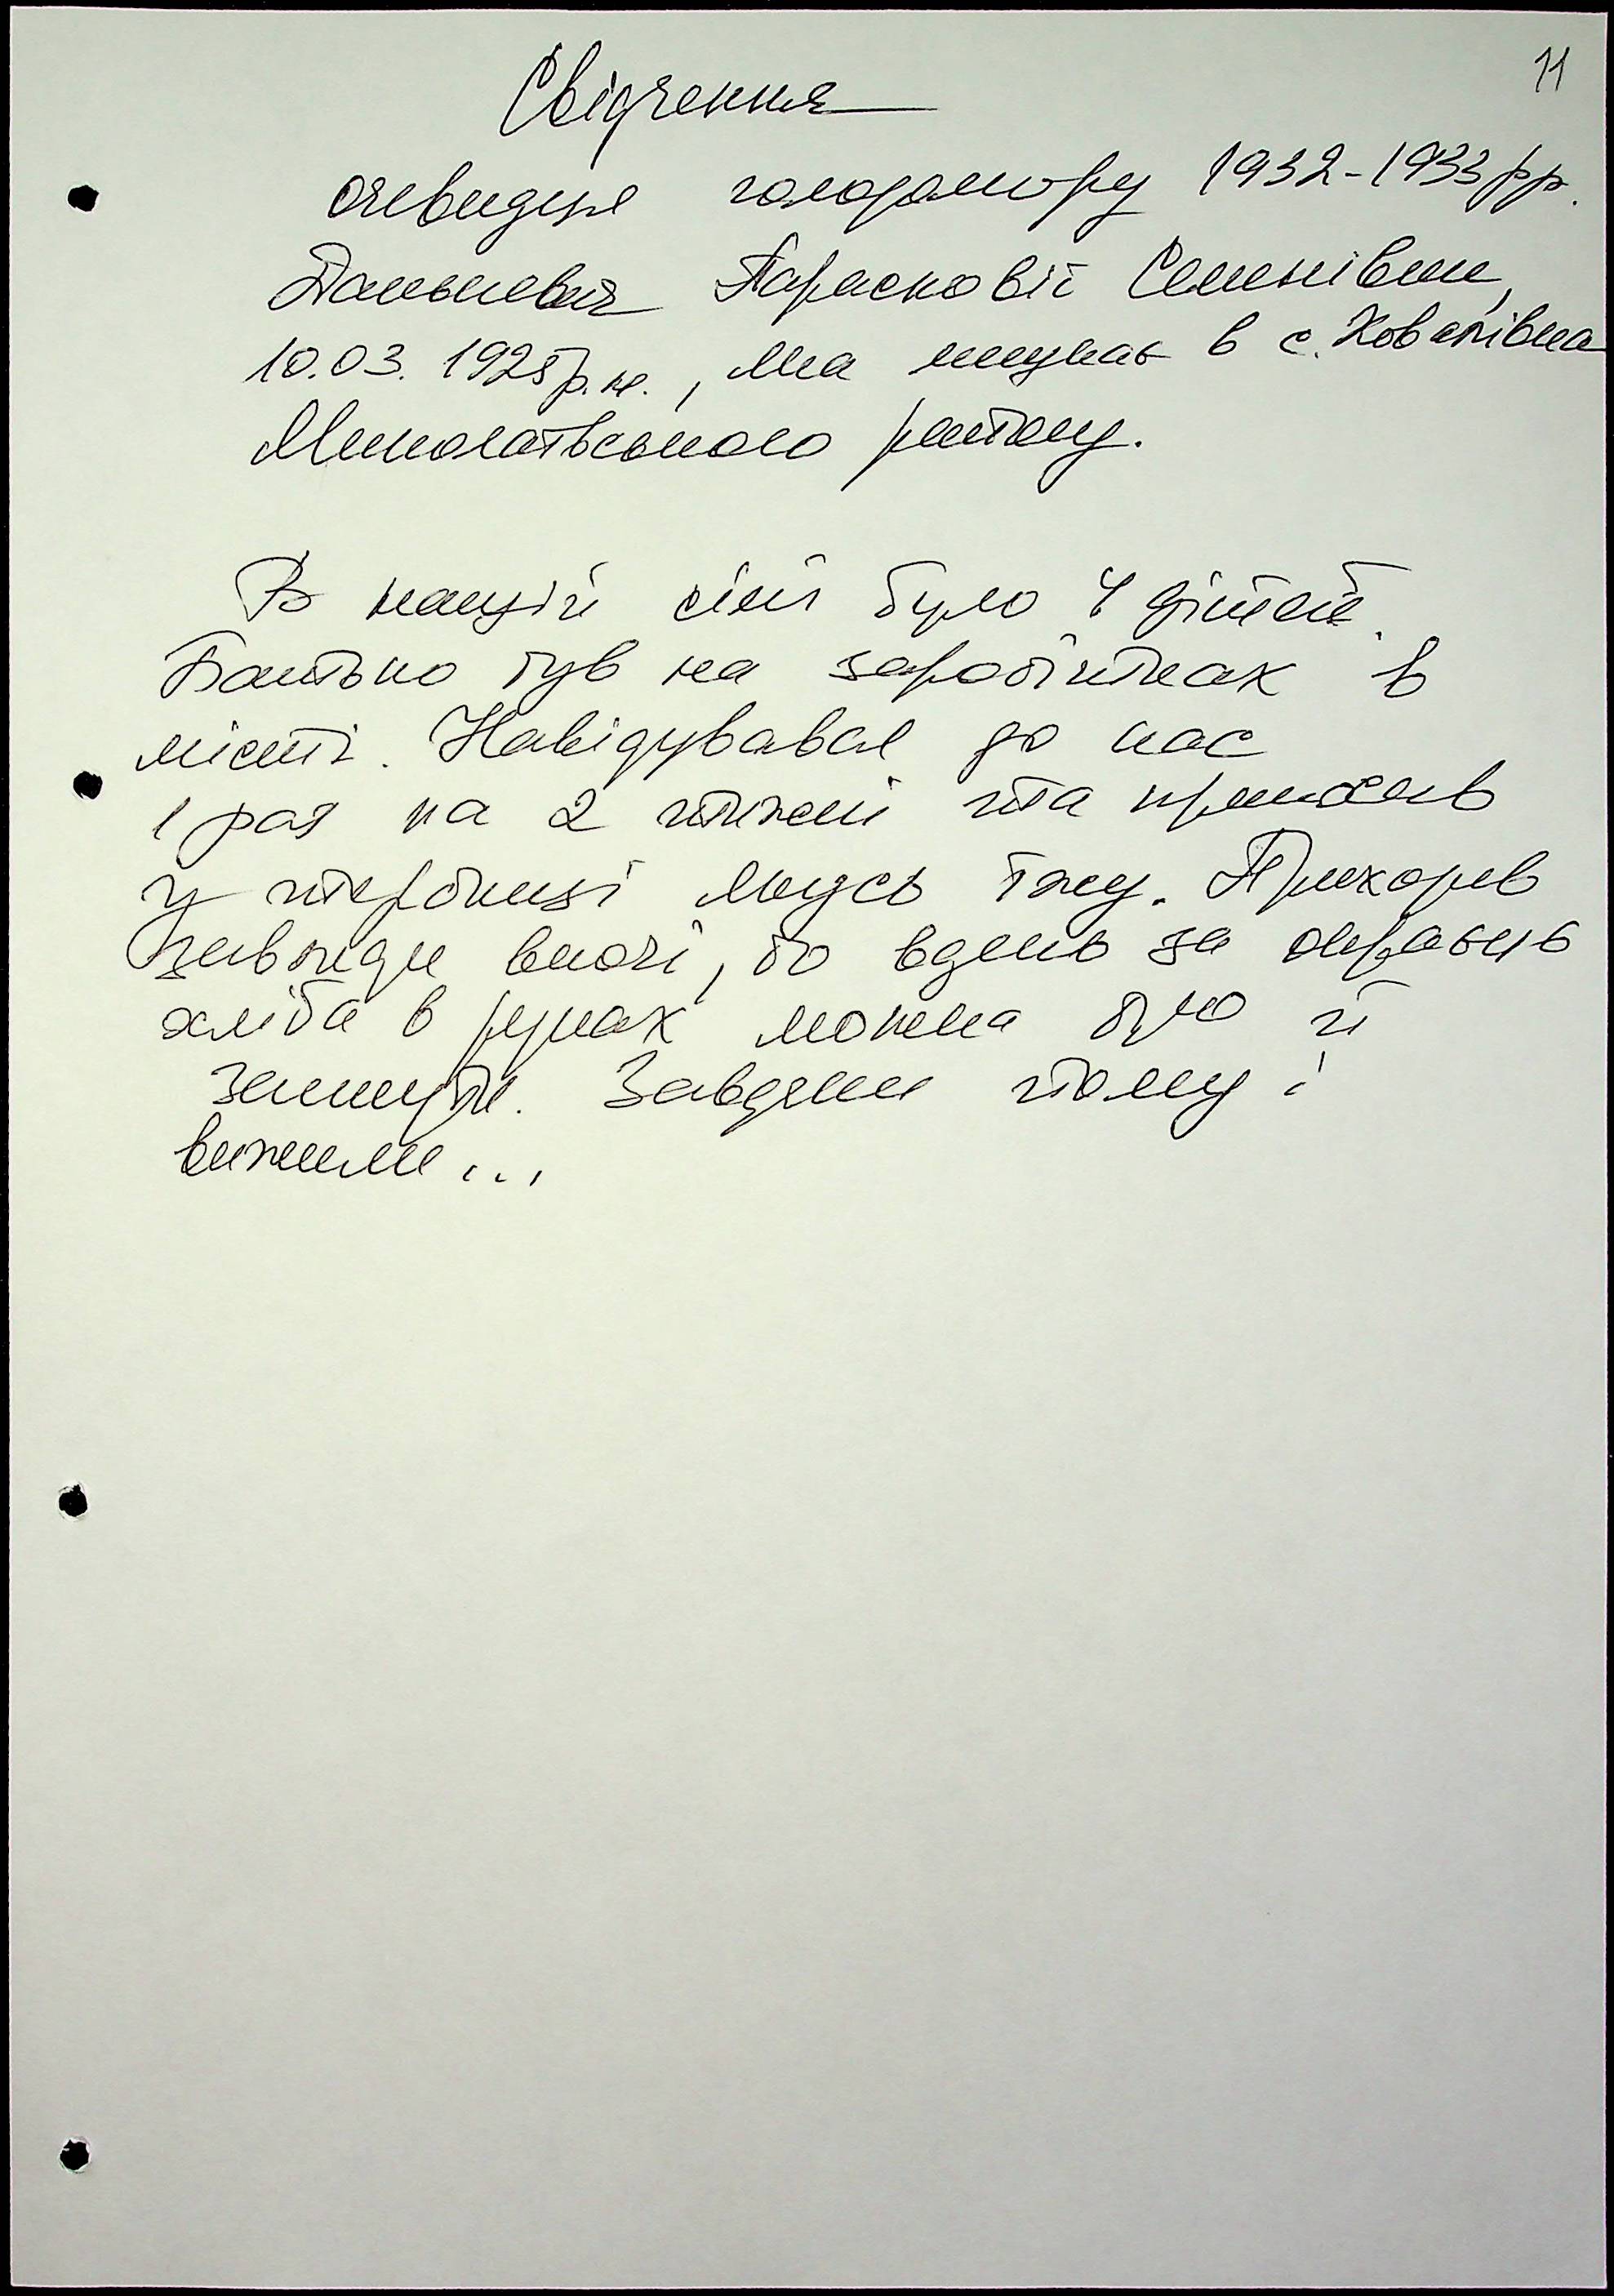 11
Свідчення
очевидця голодомору 1932-1933 рр.
Парасковії Семенівни,
10.03. 1925 р.н., яка мешкає в с. Ковалівка
Миколаївського району.
В нашій сім'ї було 4 дітей.
Батько був на заробітках в
місті. Навідувався до нас
1 раз на 2 тижні та приносив
у торбинці якусь їжу. Приходив
завжди вночі, бо вдень за окраєць
хліба в руках можна було й
загинути. Завдяки тому і
вижили...